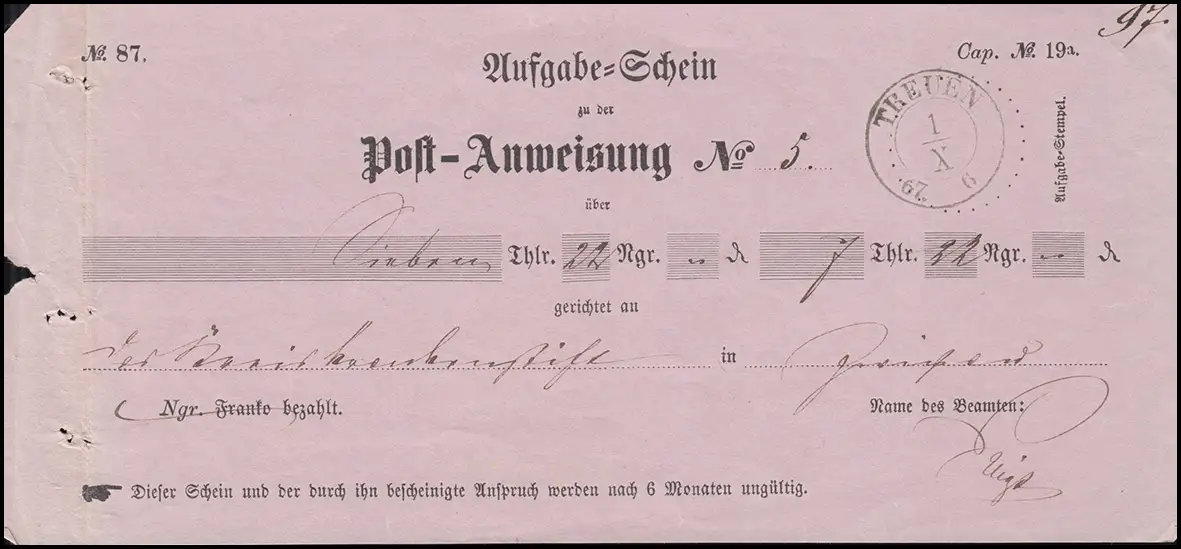 97.
No. 87.
Aufgabe-Schein
Cap. No. 19a.
zu der
Post-Anweisung No 5.
TREUEN
1
X
67. 6
Aufgabe-Stempel.
über
Sieben Thlr. 22 Ngr. „ d 7 Thlr. 22 Ngr. „ d
gerichtet an
das Kreiskrankenstift in Zwickau
Ngr. Franko bezahlt.
Name des Beamten:
Dieser Schein und der durch ihn bescheinigte Anspruch werden nach 6 Monaten ungültig.